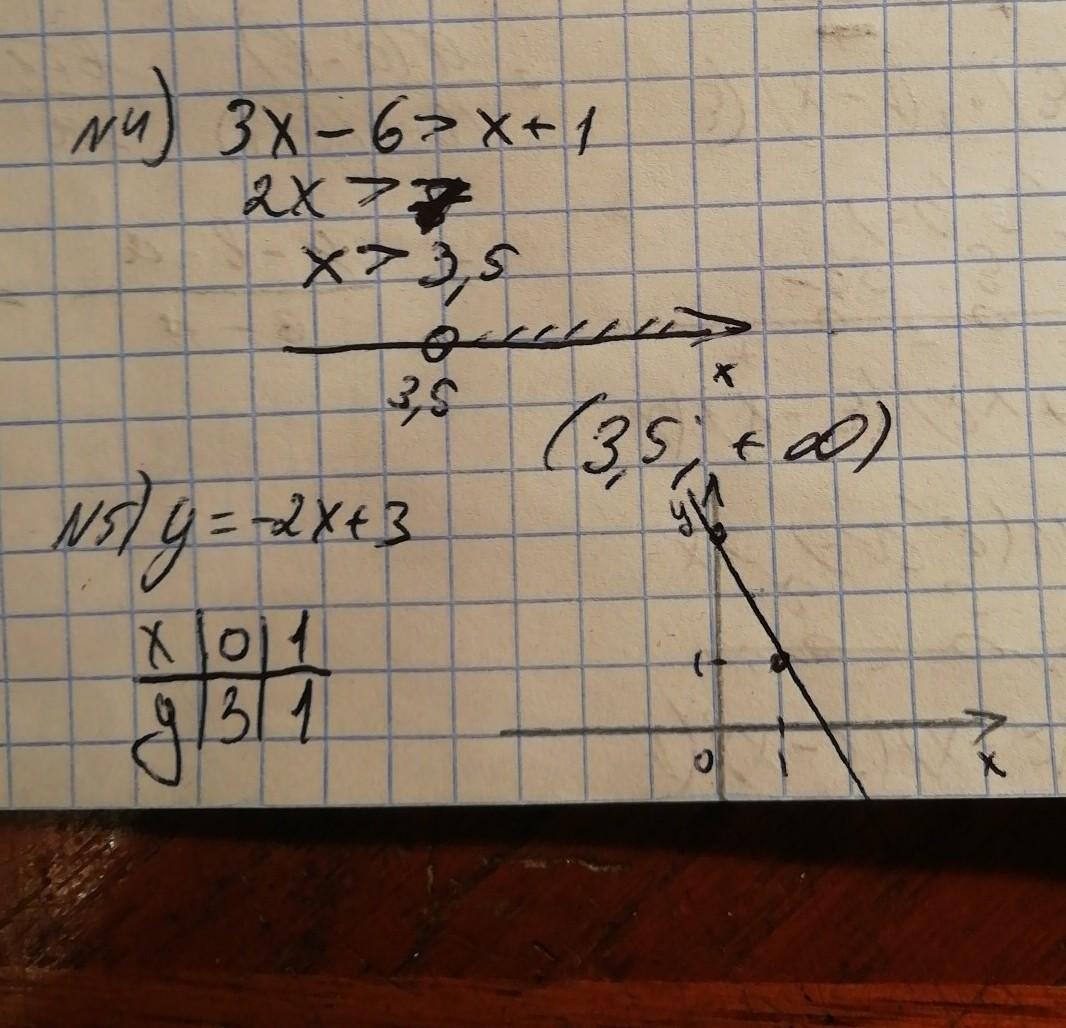 N4) 3x - 6 > x + 1
2x > 7
x > 3,5
3,5
x
(3,5; + ∞)
N5) y = -2x + 3
y
x | 0 | 1
y | 3 | 1
1
0 1 x